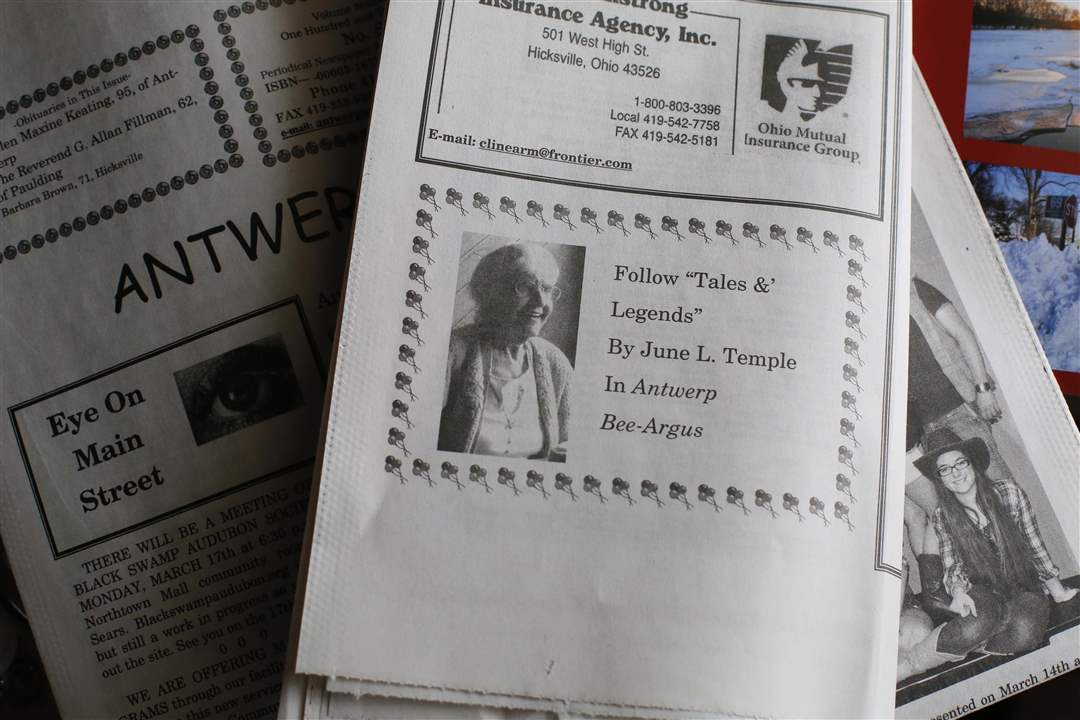 -Obituaries in This Issue-
len Maxine Keating, 95, of Ant-
erp
he Reverend G. Allan Fillman, 62,
of Paulding
Barbara Brown, 71, Hicksville
Volume
One Hundred
No.
Periodical Newspaper
ISBN—
Phone
FAX 419-
e-mail:
ANTWER
Eye On
Main
Street
THERE WILL BE A MEETING
BLACK SWAMP AUDUBON SOCI
MONDAY, MARCH 17th at 6:30
Northtown Mall community
Sears. Blackswampaudubon.org
but still a work in progress
out the site. See you on the 17th
0 0 0
WE ARE OFFERING
GRAMS through our
this new
strong
Insurance Agency, Inc.
501 West High St.
Hicksville, Ohio 43526
1-800-803-3396
Local 419-542-7758
FAX 419-542-5181
E-mail: clinearm@frontier.com
Ohio Mutual
Insurance Group
Follow “Tales &’
Legends”
By June L. Temple
In Antwerp
Bee-Argus
sented on March 14th a